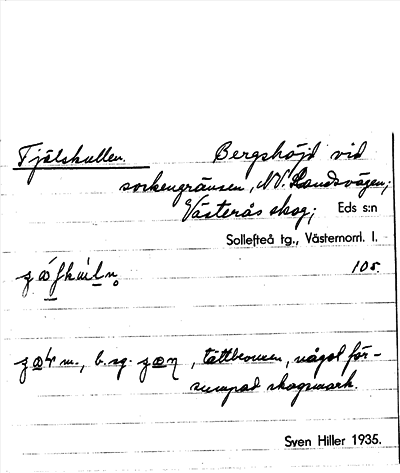 Tjälskullen. Bergshöjd vid
sockengränsen, NV. Landsvägen;
Västerås skog; Eds s:n
Sollefteå tg., Västernorrl. l.
105.
m., b. sg. , tättbevuxen, något för-
sumpad skogsmark.
Sven Hiller 1935.